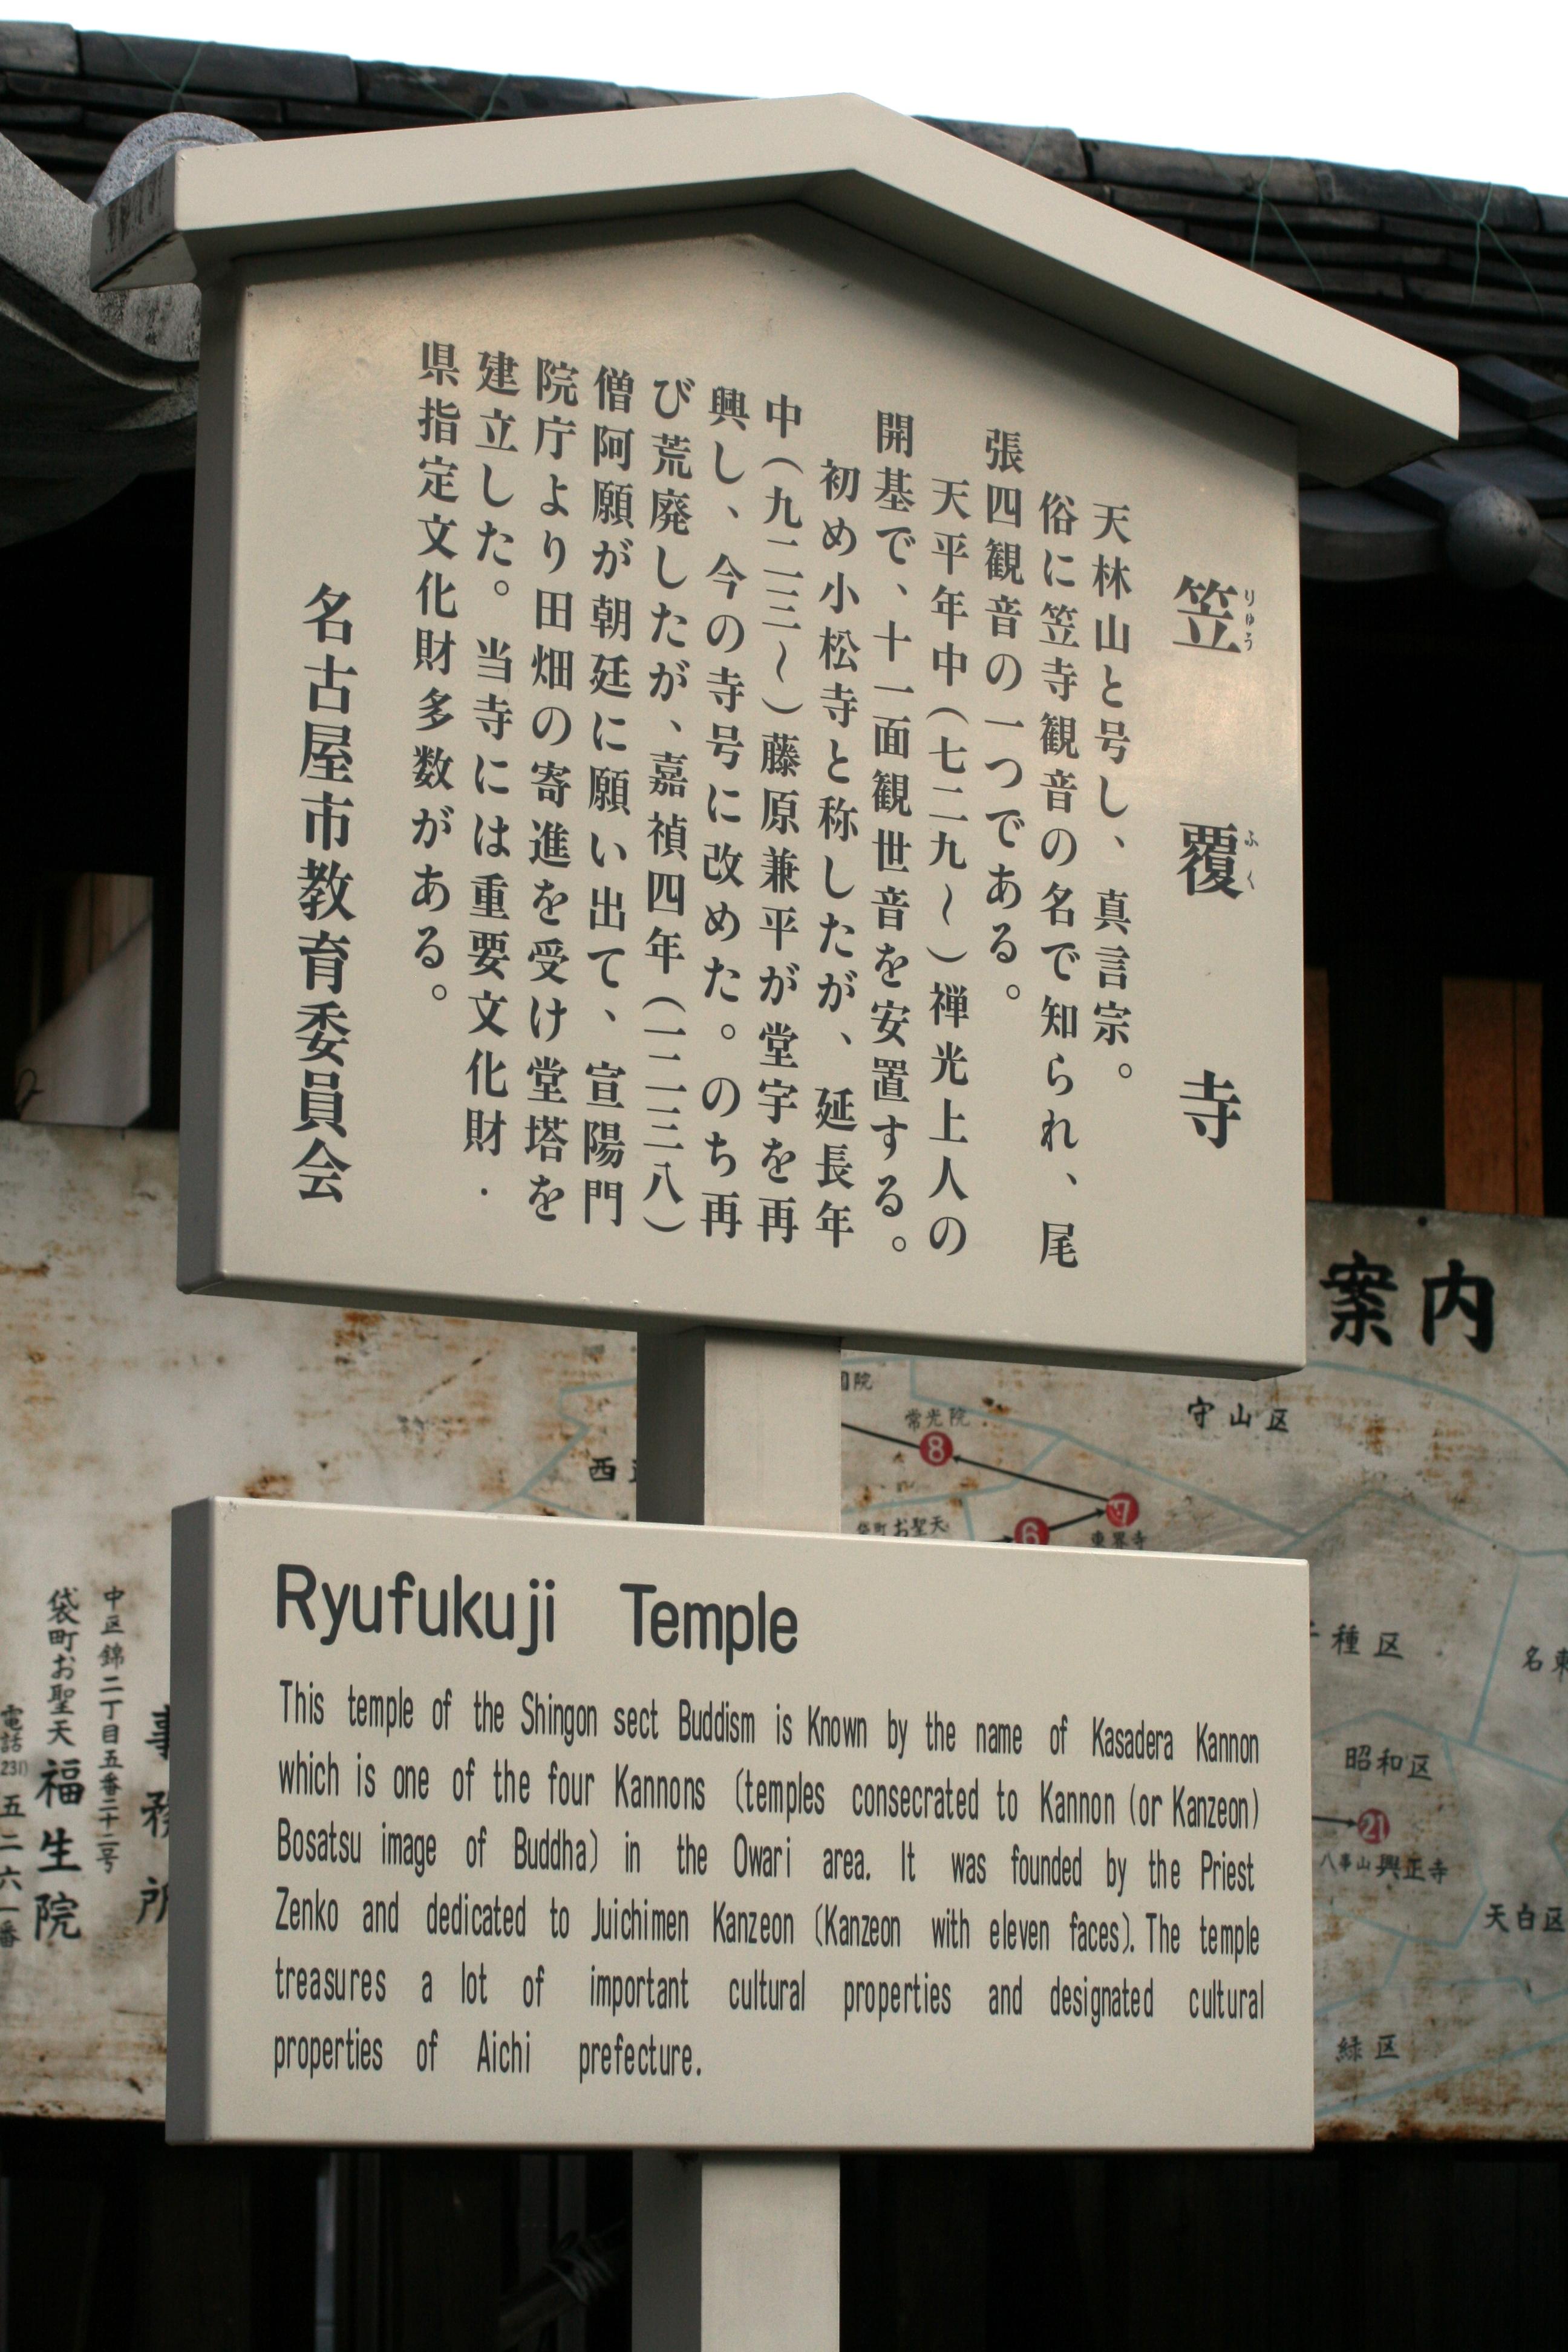 笠覆寺
りゅう ふく
天林山と号し、真言宗。
俗に笠寺観音の名で知られ、尾
張四観音の一つである。
天平年中（七二九～）禅光上人の
開基で、十一面観世音を安置する。
初め小松寺と称したが、延長年
中（九二三～）藤原兼平が堂宇を再
興し、今の寺号に改めた。のち再
び荒廃したが、嘉禎四年（一二三八）
僧阿願が朝廷に願い出て、宣陽門
院庁より田畑の寄進を受け堂塔を
建立した。当寺には重要文化財・
県指定文化財多数がある。
名古屋市教育委員会
Ryufukuji Temple
This temple of the Shingon sect Buddism is Known by the name of Kasadera Kannon
which is one of the four Kannons (temples consecrated to Kannon (or Kanzeon)
Bosatsu image of Buddha) in the Owari area. It was founded by the Priest
Zenko and dedicated to Juichimen Kanzeon (Kanzeon with eleven faces). The temple
treasures a lot of important cultural properties and designated cultural
properties of Aichi prefecture.
案内
守山区
常光院
8
7
6
袋町お聖天
西
種区
名東
昭和区
21
八事山興正寺
天白区
緑区
事務所
中区錦二丁目五番二十二号
袋町お聖天 福生院
電話
231)
五二六一番